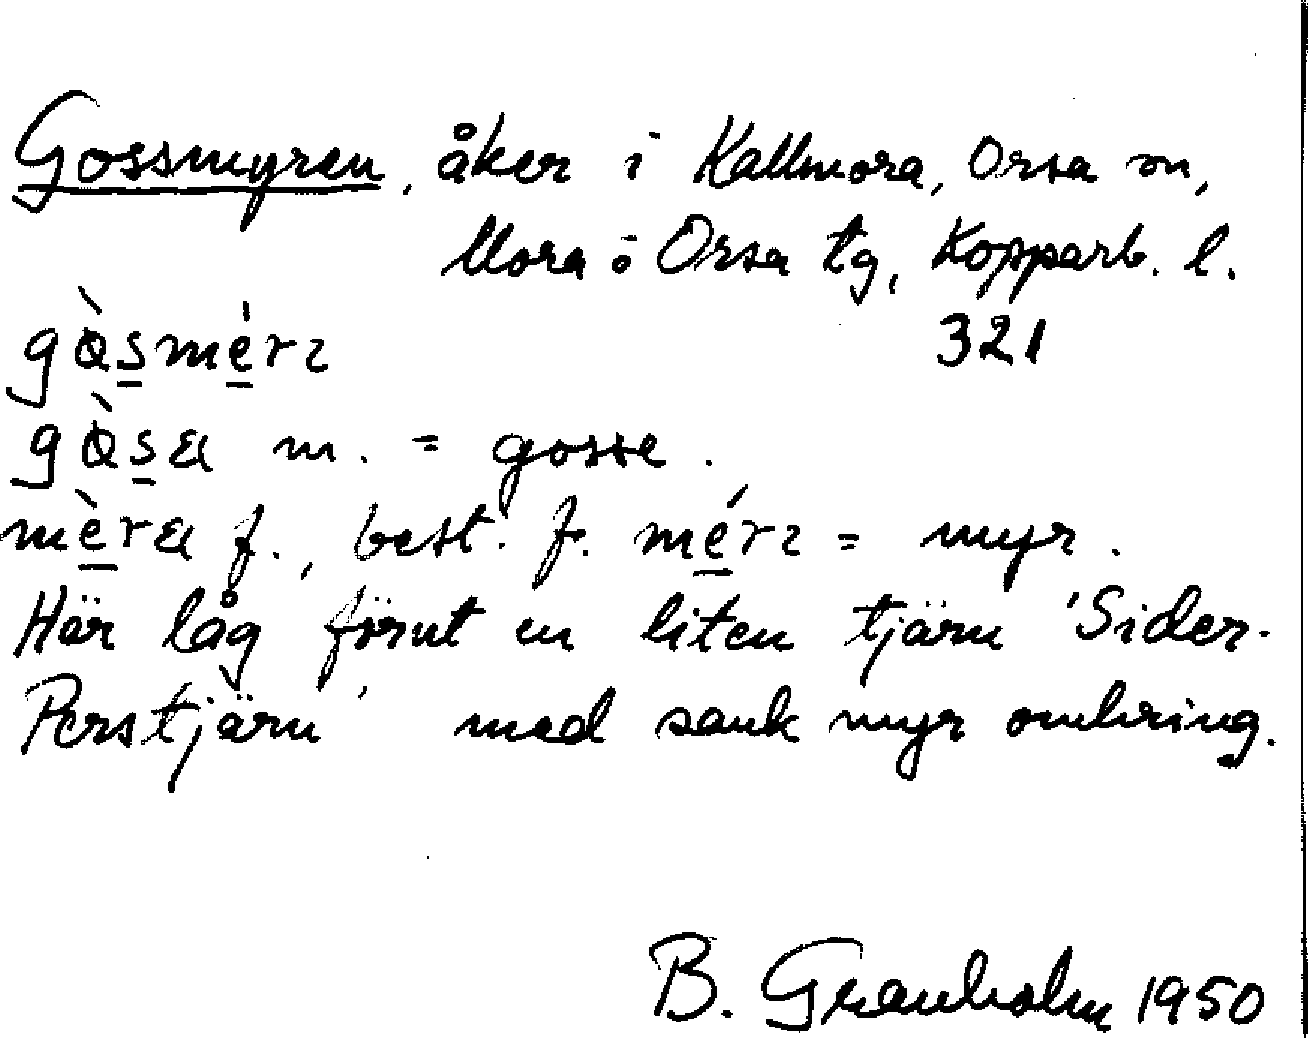 Gossmyren, åker i Kallmora, Orsa sn,
Mora o Orsa tg, Kopparb. l.
321
m. = gosse.
f., best. f. = myr.
Här låg förut en liten tjärn 'Sider-
Perstjärn' med sank myr omkring.
B. Granholm 1950